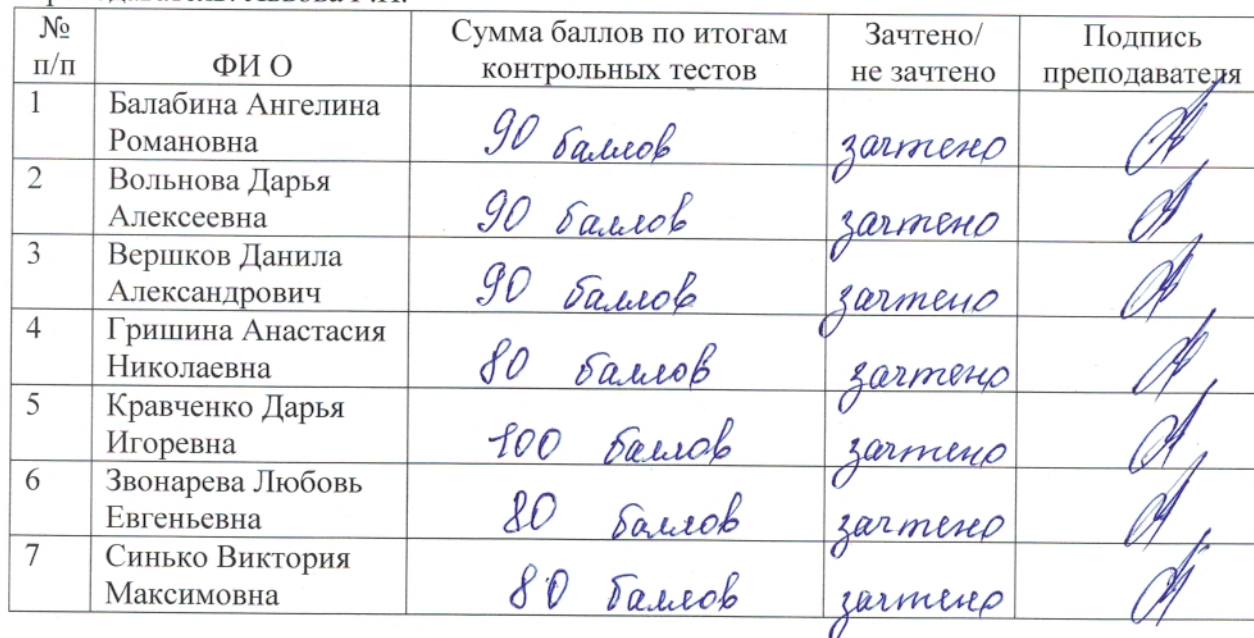 № п/п ФИ О Сумма баллов по итогам контрольных тестов Зачтено/ не зачтено Подпись преподавателя
1 Балабина Ангелина Романовна 90 баллов зачтено
2 Вольнова Дарья Алексеевна 90 баллов зачтено
3 Вершков Данила Александрович 90 баллов зачтено
4 Гришина Анастасия Николаевна 80 баллов зачтено
5 Кравченко Дарья Игоревна 100 баллов зачтено
6 Звонарева Любовь Евгеньевна 80 баллов зачтено
7 Синько Виктория Максимовна 80 баллов зачтено